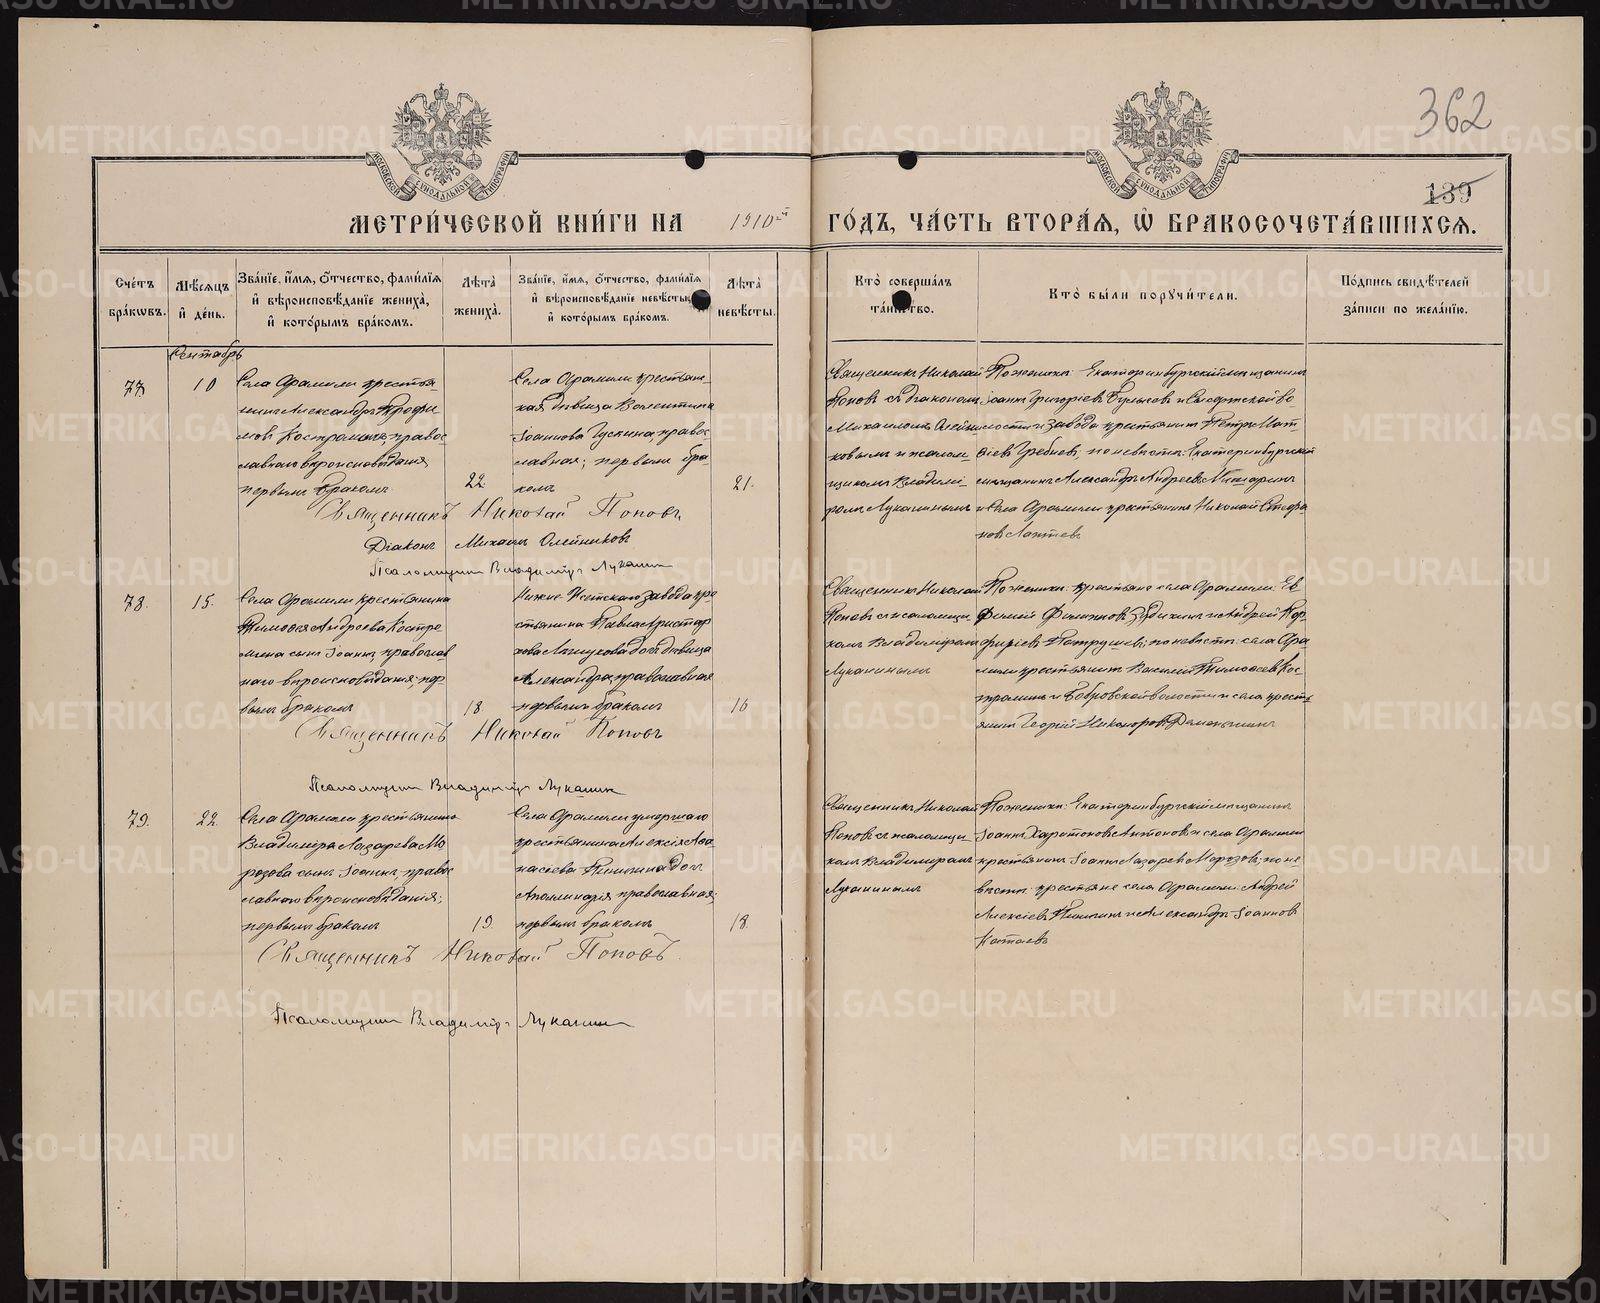 362
139
МЕТРИ́ЧЕСКОЙ КНИ́ГИ НА 1910й ГО́ДЪ, ЧА́СТЬ ВТОРА́Я, Ѽ БРАКОСОЧЕТА́ВШИХСЯ.
МОСКОВСКОЙ СѴНОДАЛЬНОЙ ТИПОГРАФІИ
МОСКОВСКОЙ СѴНОДАЛЬНОЙ ТИПОГРАФІИ
Сче́тъ бра́кѡвъ.
Мѣ́сяцъ и҆ де́нь.
Зва́нїе, и҆́мя, ѻ҆́тчество, фами́лїя и҆ вѣроисповѣ́данїе жениха̀, и҆ кото́рымъ бра́комъ.
Лѣ́та жениха̀.
Зва́нїе, и҆́мя, ѻ҆́тчество, фами́лїя и҆ вѣроисповѣ́данїе невѣ́сты, и҆ кото́рымъ бра́комъ.
Лѣ́та невѣ́сты.
Кто̀ соверша́лъ та́инство.
Кто̀ бы́ли порꙋчи́тели.
По́дпись свидѣ́телей за́писи по жела́нїю.
Сентябрь
77
10
Села Арамили крестья-
нинъ Александръ Трофи-
мовъ Костромин, правос
лавнаго вѣроисповѣданія,
первымъ бракомъ
22.
Села Арамили крестьянс-
кая дѣвица Валентина
Іоаннова Гускина, правос
лавная; первымъ бра-
комъ
21.
Священникъ Николай
Поповъ съ діакономъ
Михаиломъ Олейни
ковымъ и псалом-
щикомъ Владимі-
ромъ Лукинымъ
По женихѣ: Екатеринбургскій мѣщанинъ
Іоаннъ Григоріевъ и во-
лости и завода крестьянинъ Петръ Мат-
ѳіевъ Гребневъ, по невѣстѣ: Екатеринбургскій
мѣщанинъ Александръ Андреевъ
и села Арамили крестьянинъ Николай Стефа
новъ Лаптевъ
Священникъ Николай Поповъ
Діаконъ Михаилъ Олейниковъ
Псаломщикъ Владиміръ Лукинъ
78.
15.
Села Арамили крестьянина
Тимоѳея Андреева Костро
мина сынъ Іоаннъ, православ
наго вѣроисповѣданія, пер
вымъ бракомъ
18
Нижне-Исетскаго завода кре
стьянина Павла Аристар
хова дочь дѣвица
Александра, православная
первымъ бракомъ
16
Священникъ Николай
Поповъ съ псаломщи
комъ Владиміромъ
Лукинымъ
По женихѣ: крестьяне села Арамили Ев
фимій Филипповъ и Андрей Пор
фиріевъ Патрушевъ; по невѣстѣ: села Ара
мили крестьянинъ Василій Тимоѳеевъ Кос
троминъ и Бобровской волости и села кресть
янинъ Георгій Никаноровъ
Священникъ Николай Поповъ
Псаломщикъ Владиміръ Лукинъ
79.
22.
Села Арамили крестьянина
Владиміра Лазарева Мо
розова сынъ Іоаннъ, правос
лавнаго вѣроисповѣданія;
первымъ бракомъ
19.
Села Арамили умершаго
крестьянина Алексія Аѳа
насіева дочь
Аполлинарія православная;
первымъ бракомъ
18.
Священникъ Николай
Поповъ съ псаломщи
комъ Владиміромъ
Лукинымъ
По женихѣ: Екатеринбургскій мѣщанинъ
Іоаннъ Харитоновъ Антоновъ и села Арамили
крестьянинъ Іоаннъ Лазаревъ Морозовъ; по не
вѣстѣ: крестьяне села Арамили: Андрей
Алексіевъ и Александръ Іоанновъ
Катаевъ
Священникъ Николай Поповъ
Псаломщикъ Владиміръ Лукинъ
METRIKI.GASO-URAL.RU